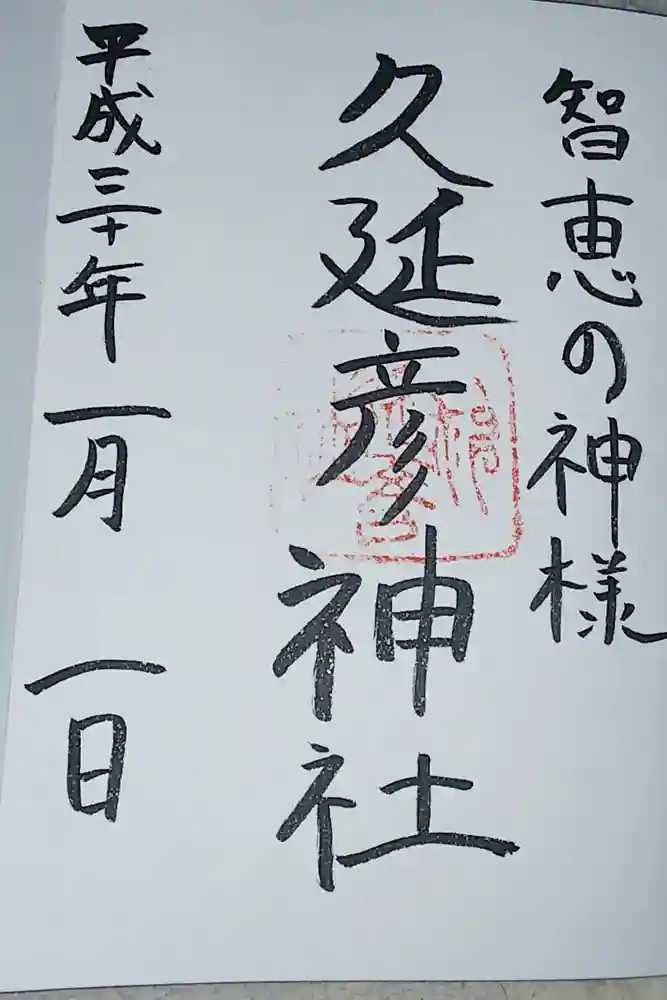 智恵の神様
久延彦神社
平成三十年一月一日